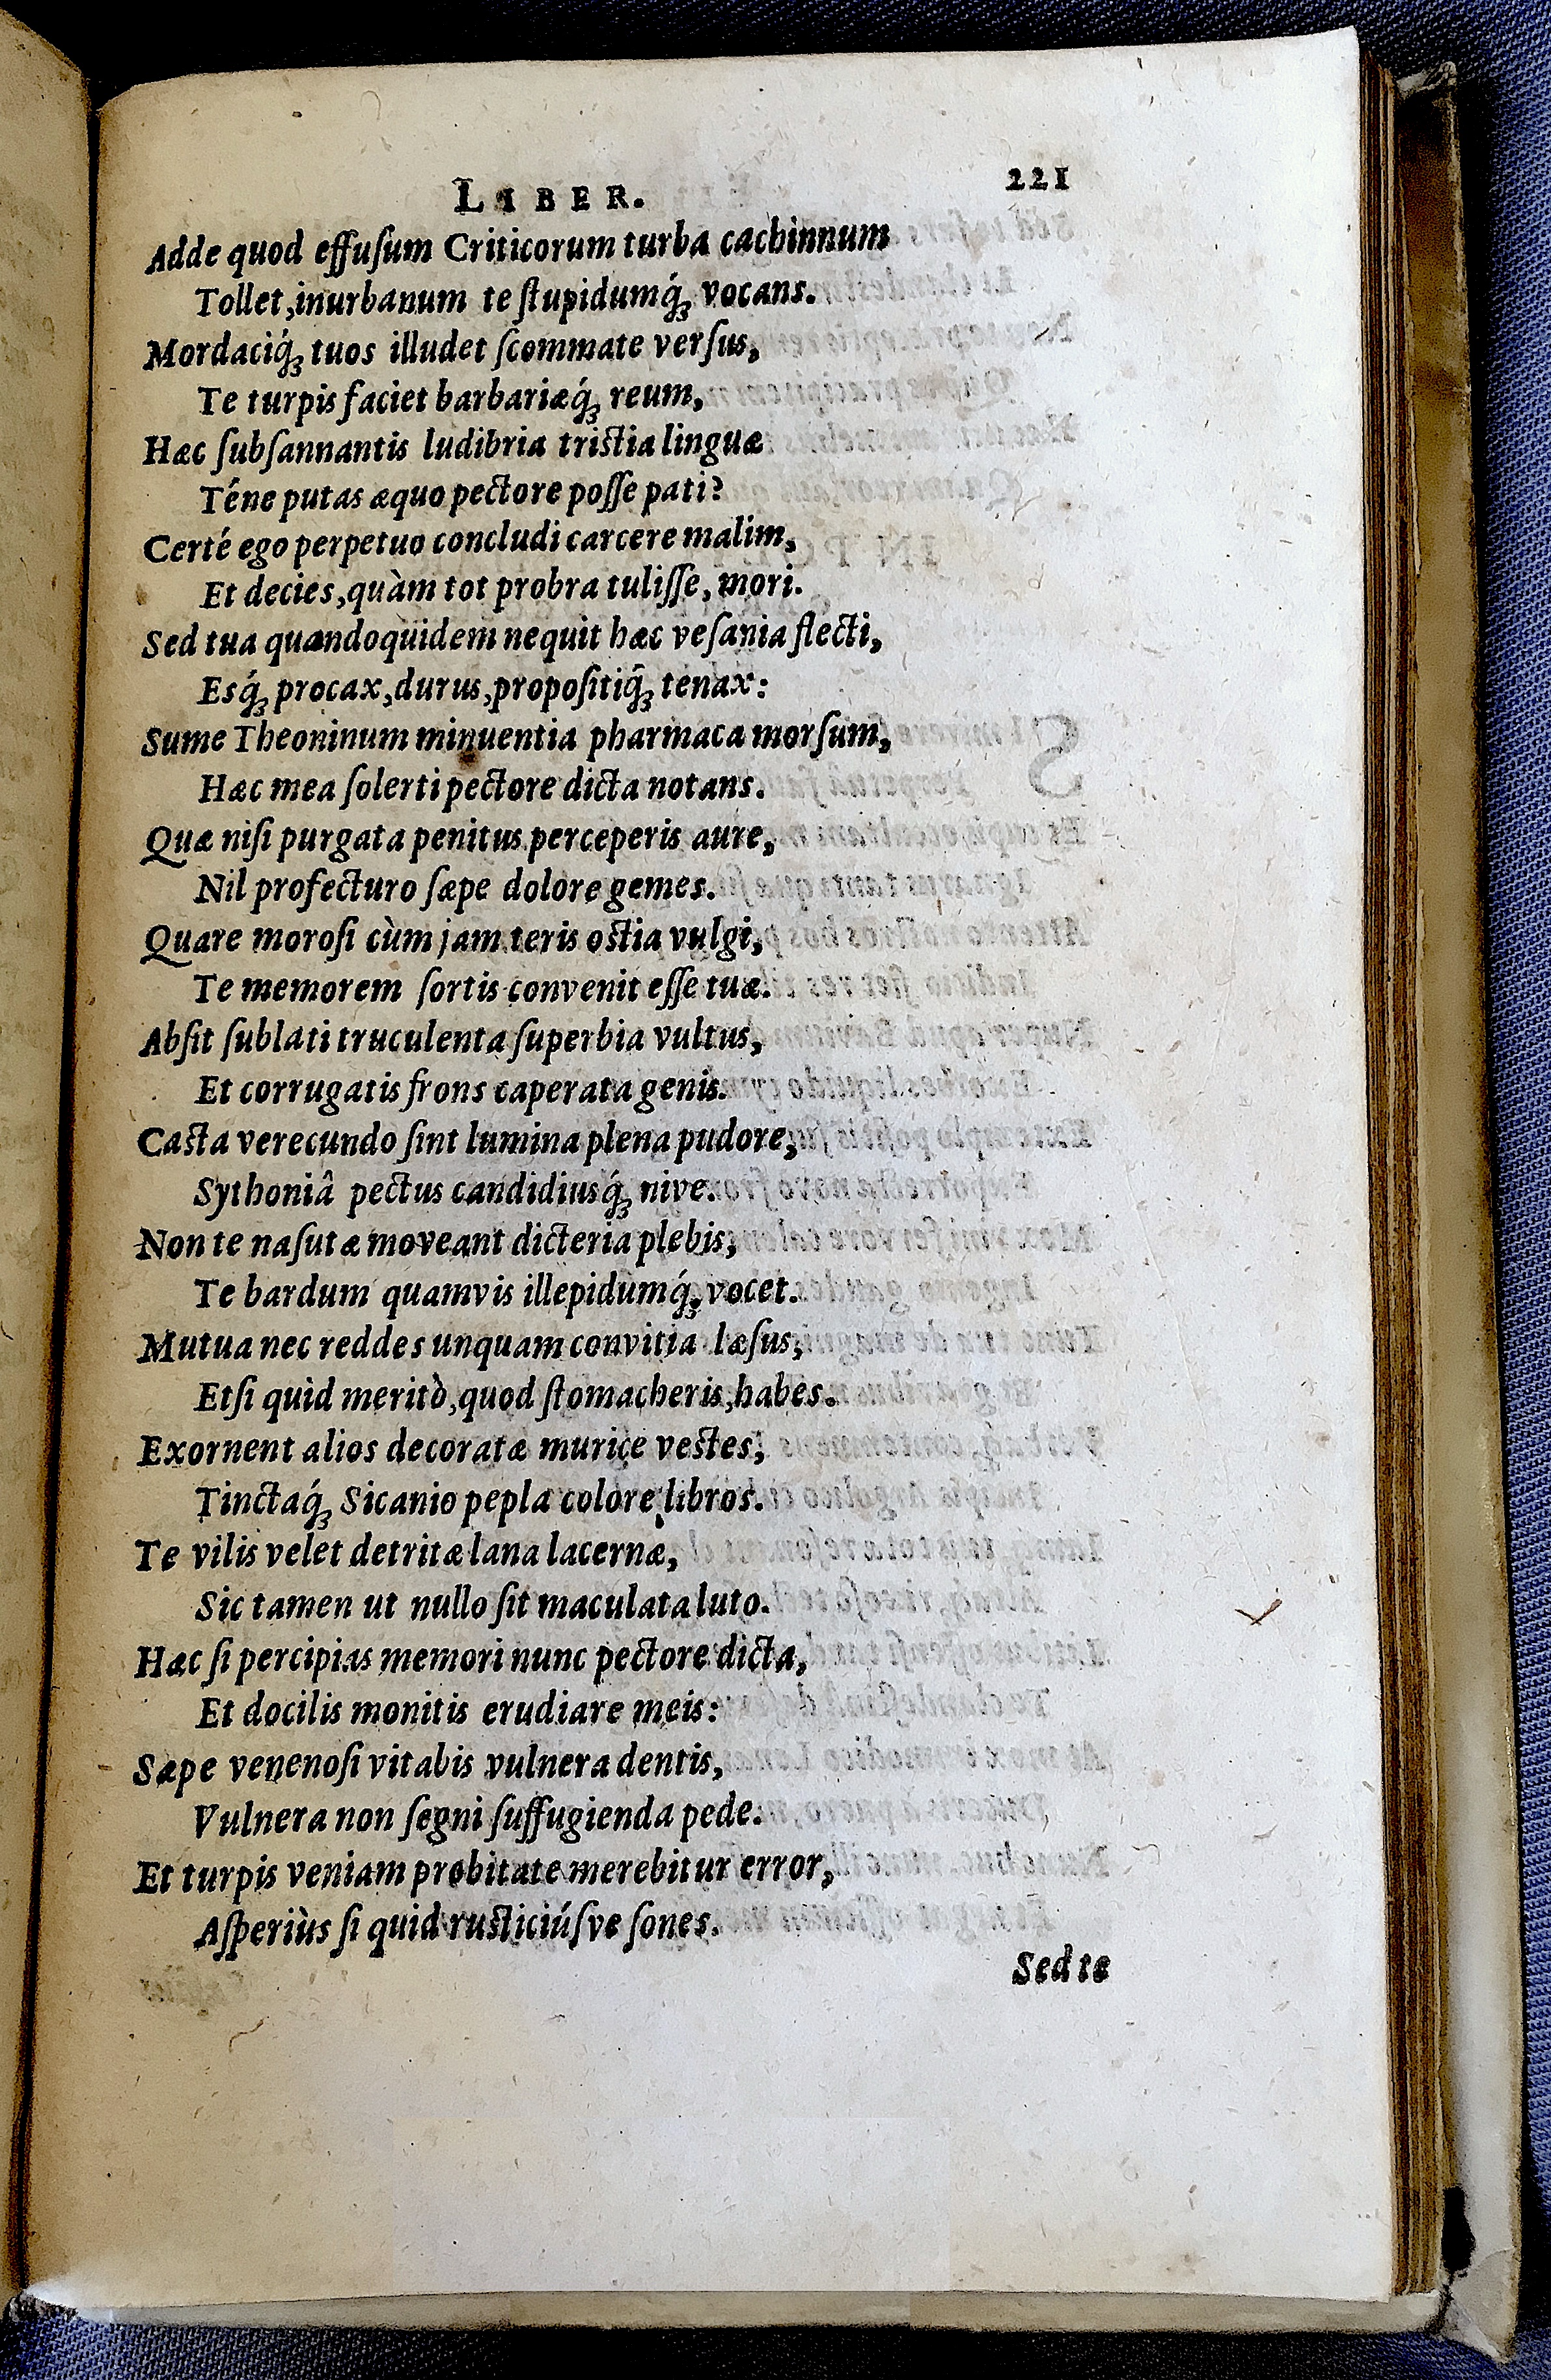 LIBER. 221
Adde quod effuſum Criticorum turba cachinnum
Tollet, inurbanum te ſtupidumq́ꝫ vocans.
Mordaciq́ꝫ tuos illudet ſcommate verſus,
Te turpis faciet barbariæq́ꝫ reum,
Hæc ſubſannantis ludibria triſtia linguæ
Téne putas æquo pectore poſſe pati?
Certé ego perpetuo concludi carcere malim,
Et decies, quàm tot probra tuliſſe, mori.
Sed tua quandoquidem nequit hæc veſania flecti,
Esq́ꝫ procax, durus, propoſitiq́ꝫ tenax:
Sume Theoninum minuentia pharmaca morſum,
Hæc mea ſolerti pectore dicta notans.
Quæ niſi purgata penitus perceperis aure,
Nil profecturo ſæpe dolore gemes.
Quare moroſi cùm jam teris oſtia vulgi,
Te memorem ſortis convenit eſſe tuæ.
Abſit ſublati truculenta ſuperbia vultus,
Et corrugatis frons caperata genis.
Caſta verecundo ſint lumina plena pudore,
Sythoniâ pectus candidiusq́ꝫ nive.
Non te naſutæ moveant dicteria plebis,
Te bardum quamvis illepidumq́ꝫ vocet.
Mutua nec reddes unquam convitia læſus,
Etſi quid meritò, quod ſtomacheris, habes.
Exornent alios decoratæ murice veſtes,
Tinctaq́ꝫ Sicanio pepla colore libros.
Te vilis velet detritæ lana lacernæ,
Sic tamen ut nullo ſit maculata luto.
Hæc ſi percipias memori nunc pectore dicta,
Et docilis monitis erudiare meis:
Sæpe venenoſi vitabis vulnera dentis,
Vulnera non ſegni ſuffugienda pede.
Et turpis veniam probitate merebitur error,
Aſperiùs ſi quid ruſticiúſve ſones.
Sed te